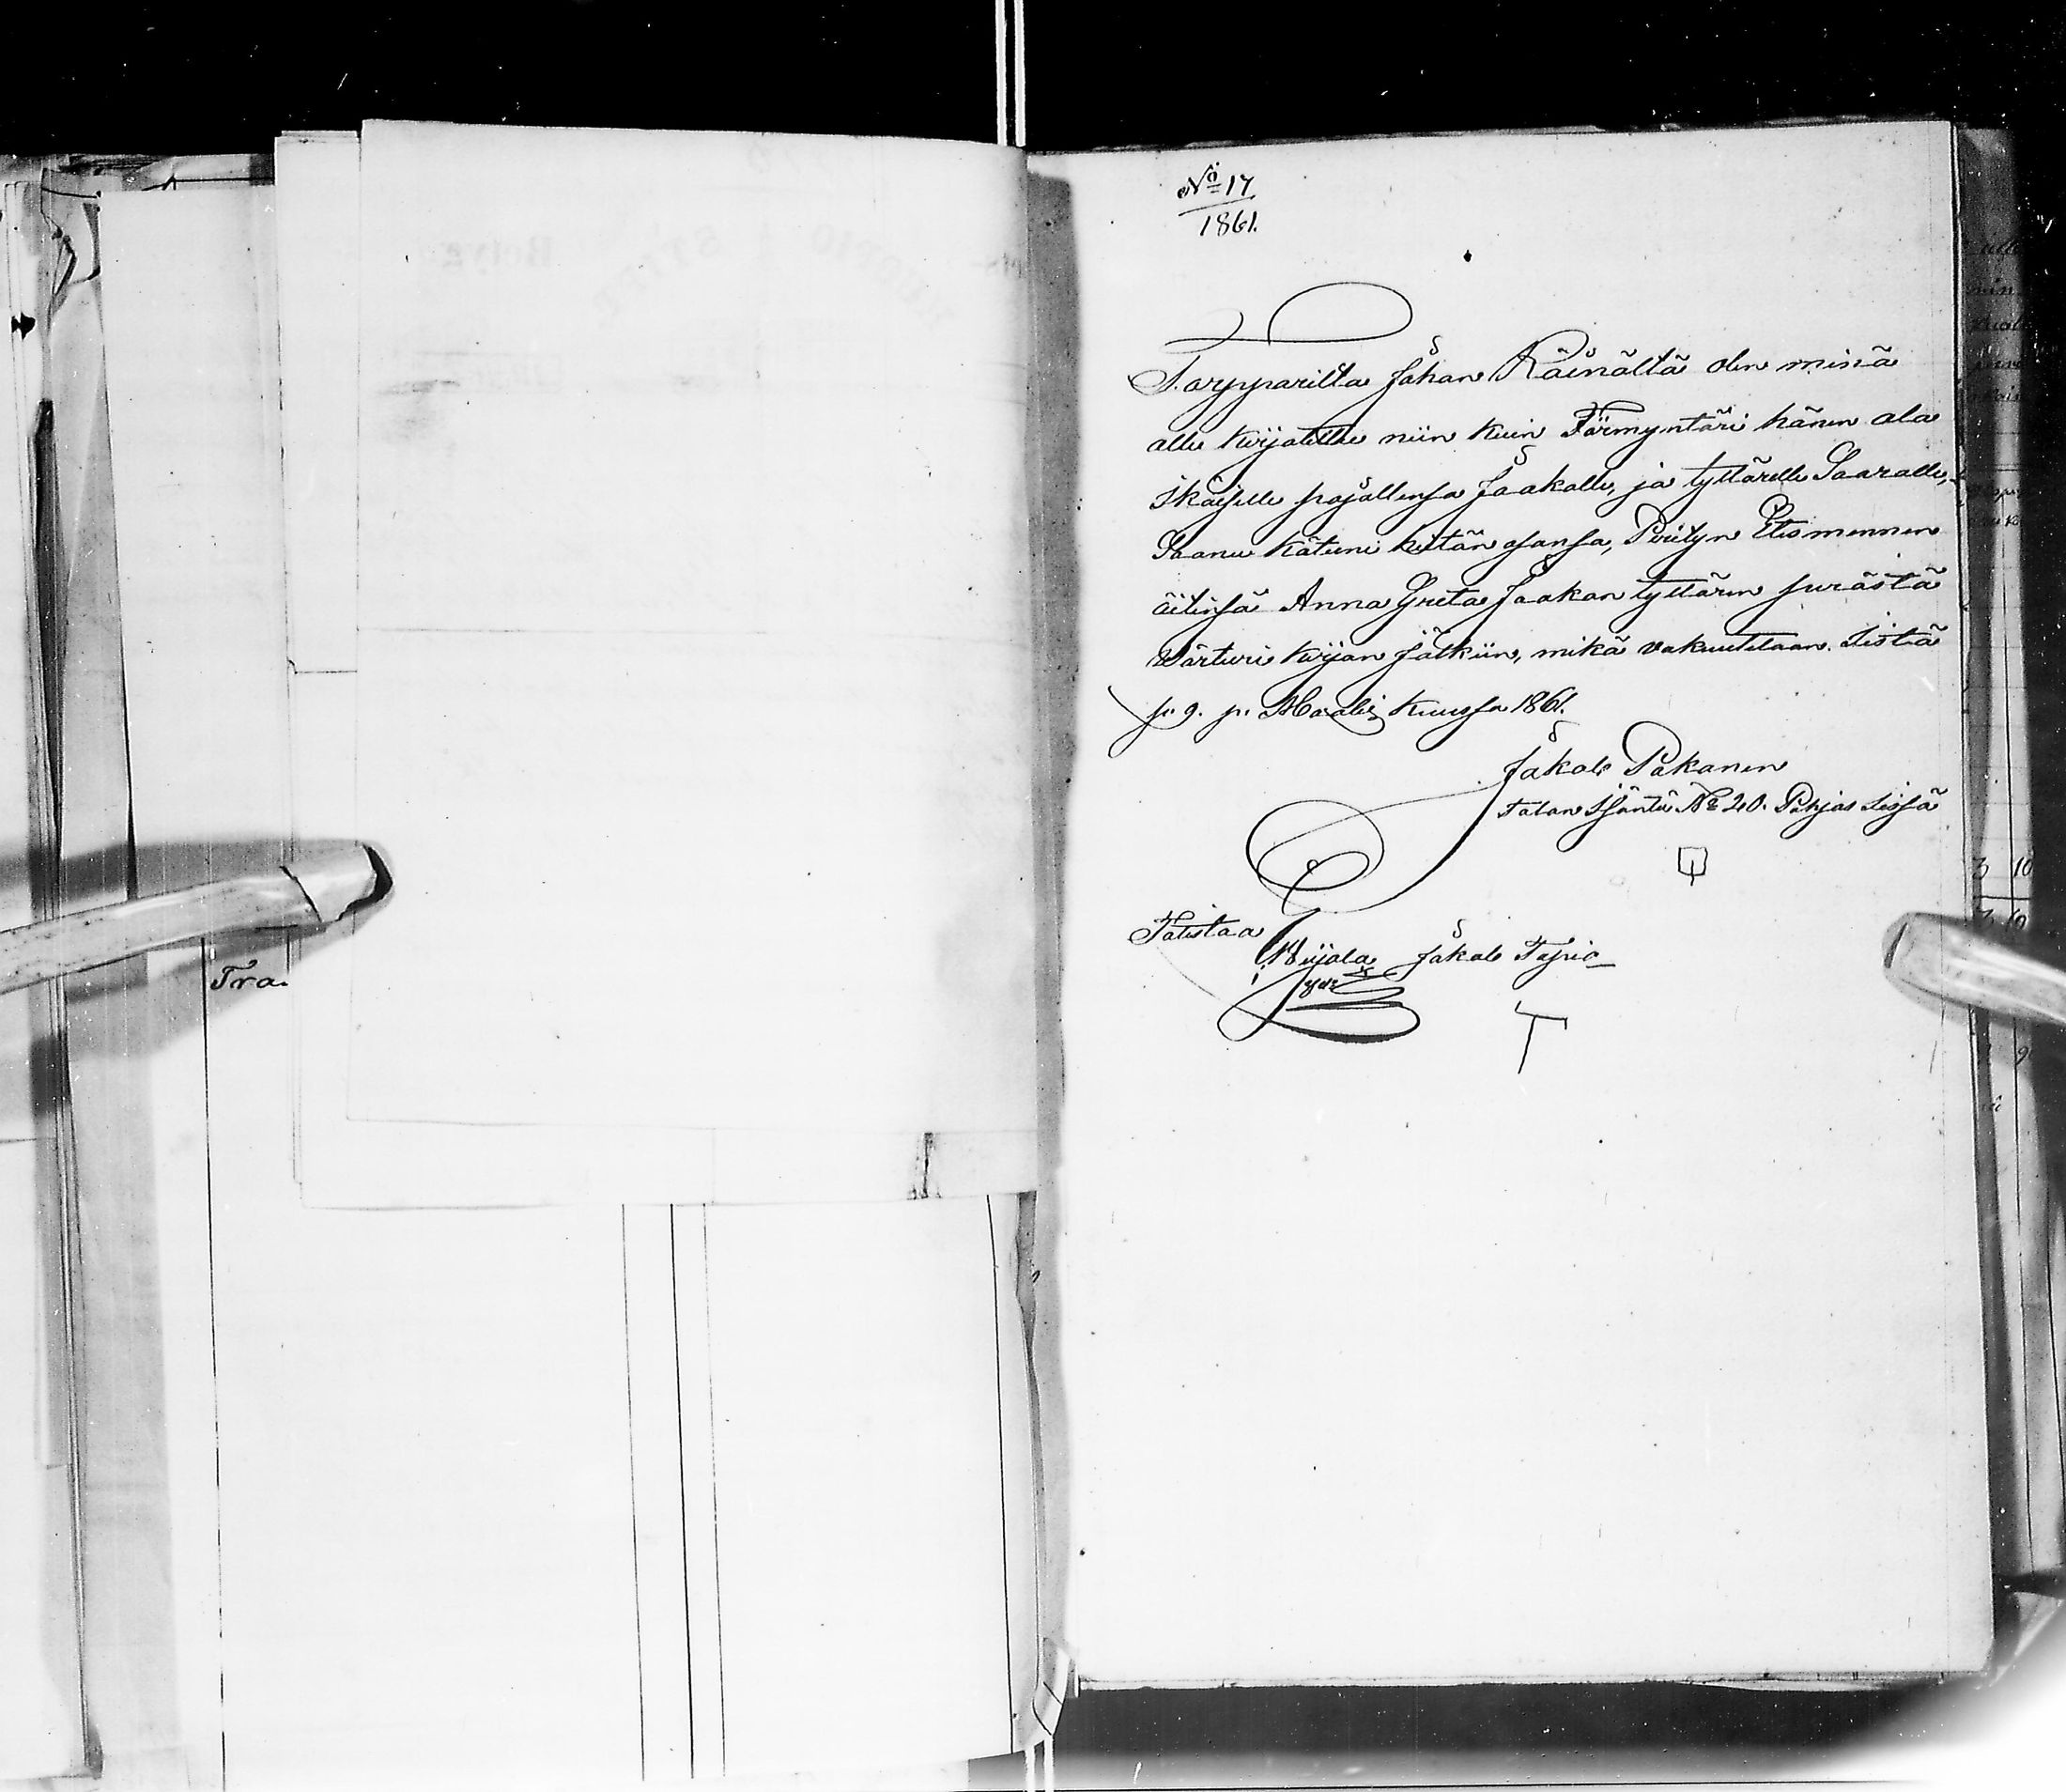 Tra.
No 17
1861.
Torpparilta Johan Räinältä olen minä
alle kirjoittu niin kuin Förmyntäri hänen ala
ikäiselle pojallensa Jaakolle, ja tyttärelle Saaralle,
Saanu käteeni heitän osansa, Perityn Etismennen
äitinsä Anna Greta Jaakon tyttären perästä
Värturi kirjan jälkiin, mikä vakuutetaan. Sistä
p: 9. p: Maalis kuussa 1861.
Jakob Pakanen
Talan Isäntä No 20. Pohjas Lissä
Todistaa
Jakob Tapio